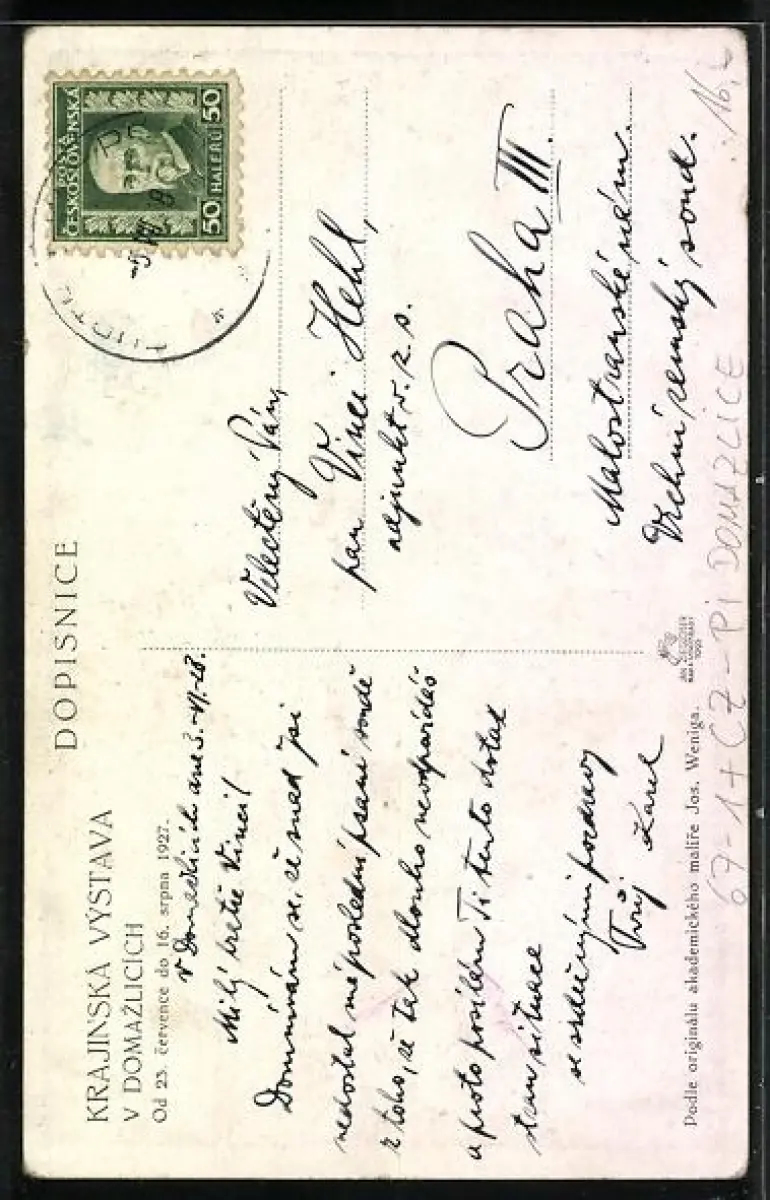 KRAJINSKÁ VÝSTAVA
V DOMAŽLICÍCH
Od 23. července do 16. srpna 1927.
DOPISNICE
POŠTA
ČESKOSLOVENSKÁ
50 HALÉŘŮ 50
v Domažlicích dne 3.-VI.-28.
Milý bratře Vinci!
Domnívám se, že snad jsi
nedostal mé poslední psaní soudě
z toho, že tak dlouho neodpovídáš
a proto posílám Ti tento dotaz
stran situace
se srdečnými pozdravy
Tvůj Karel
Velectěný Pán,
pan Vinci Hehl,
adjunkt v. z. s.
Praha III.
Malostranské nám.
Vrchní zemský soud.
Podle originálu akademického malíře Jos. Weniga.
67-1+CZ-PI DOMAZLICE